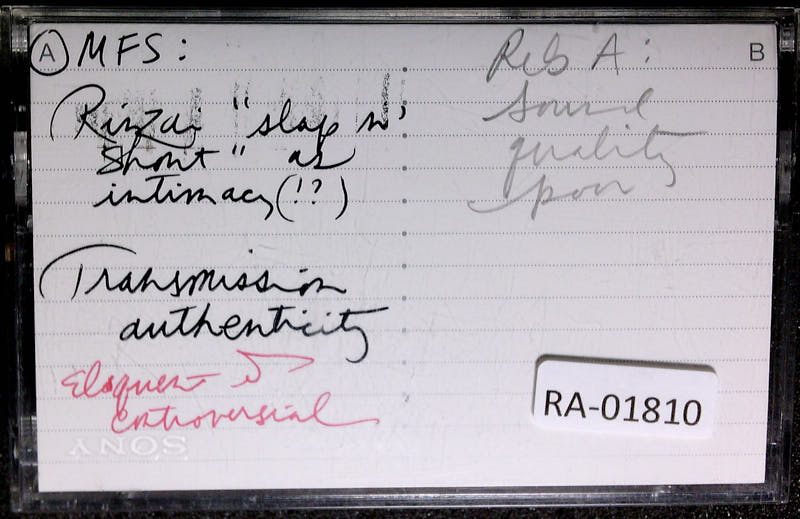 A MFS:
Rinzai "slap n'
shout" as
intimacy(!?)
Transmission
authenticity
Eloquent &
controversial
SONY
B
Reb A:
Sound
quality
poor
RA-01810